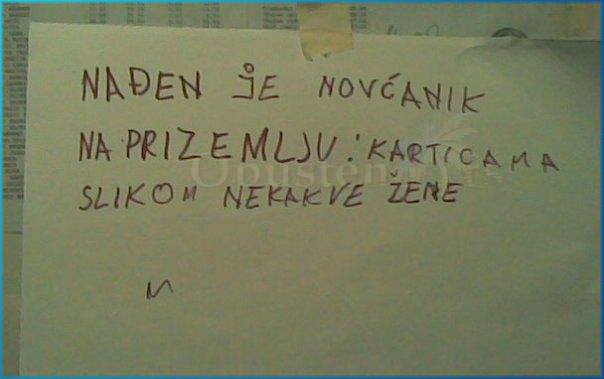 NAĐEN JE NOVĆANIK
NA PRIZEMLJU : KARTICAMA
SLIKOM NEKAKVE ŽENE